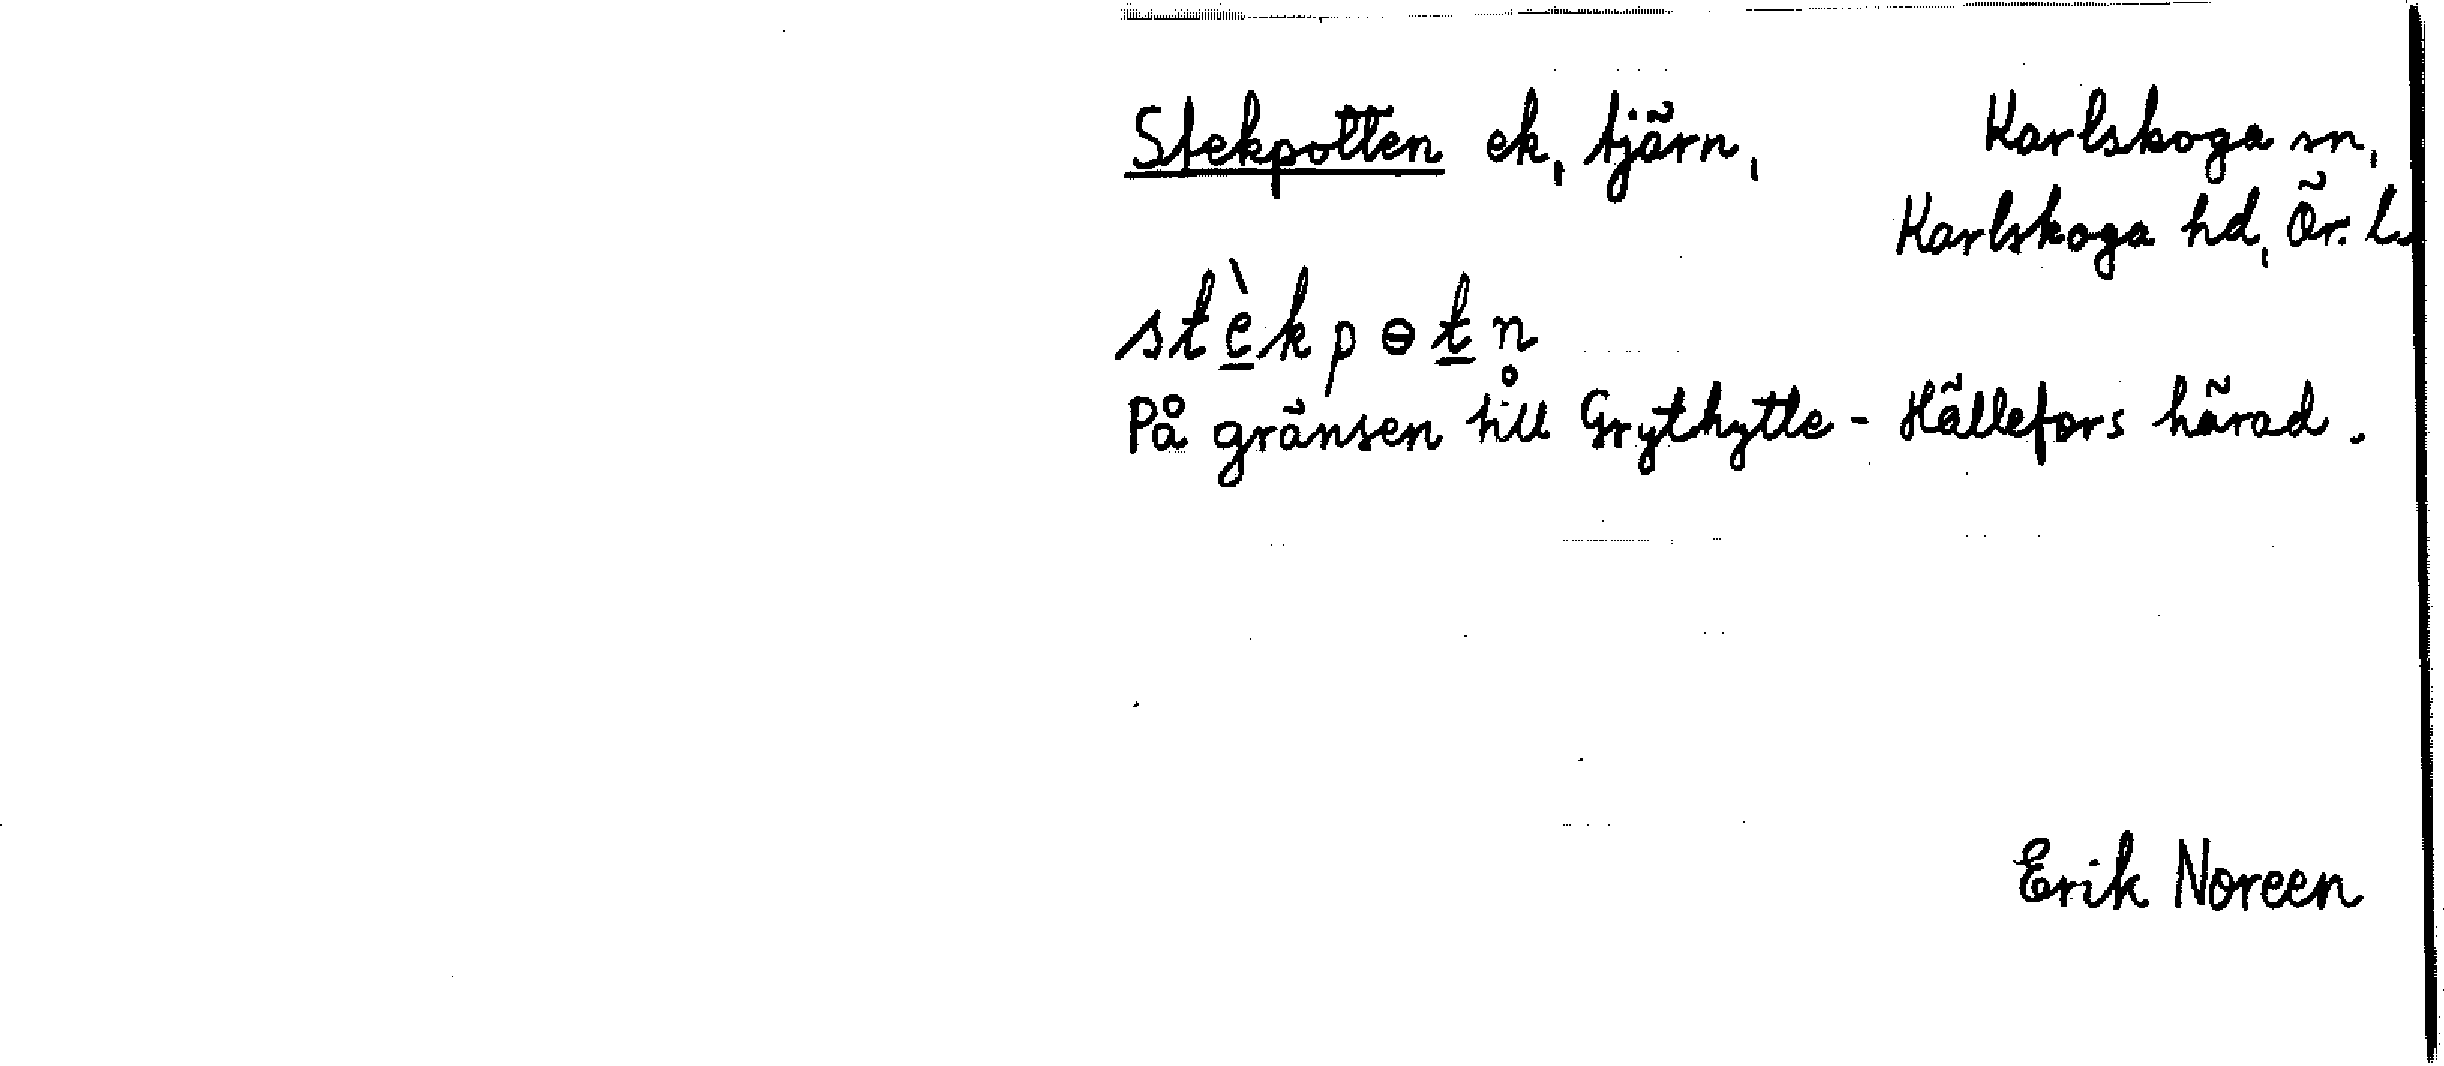 Stekpotten ek, tjärn, Karlskoga sn,
Karlskoga hd, Ör. l.
stè̱kpɵṯn̥
På gränsen till Grythytte - Hällefors härad.
Erik Noreen